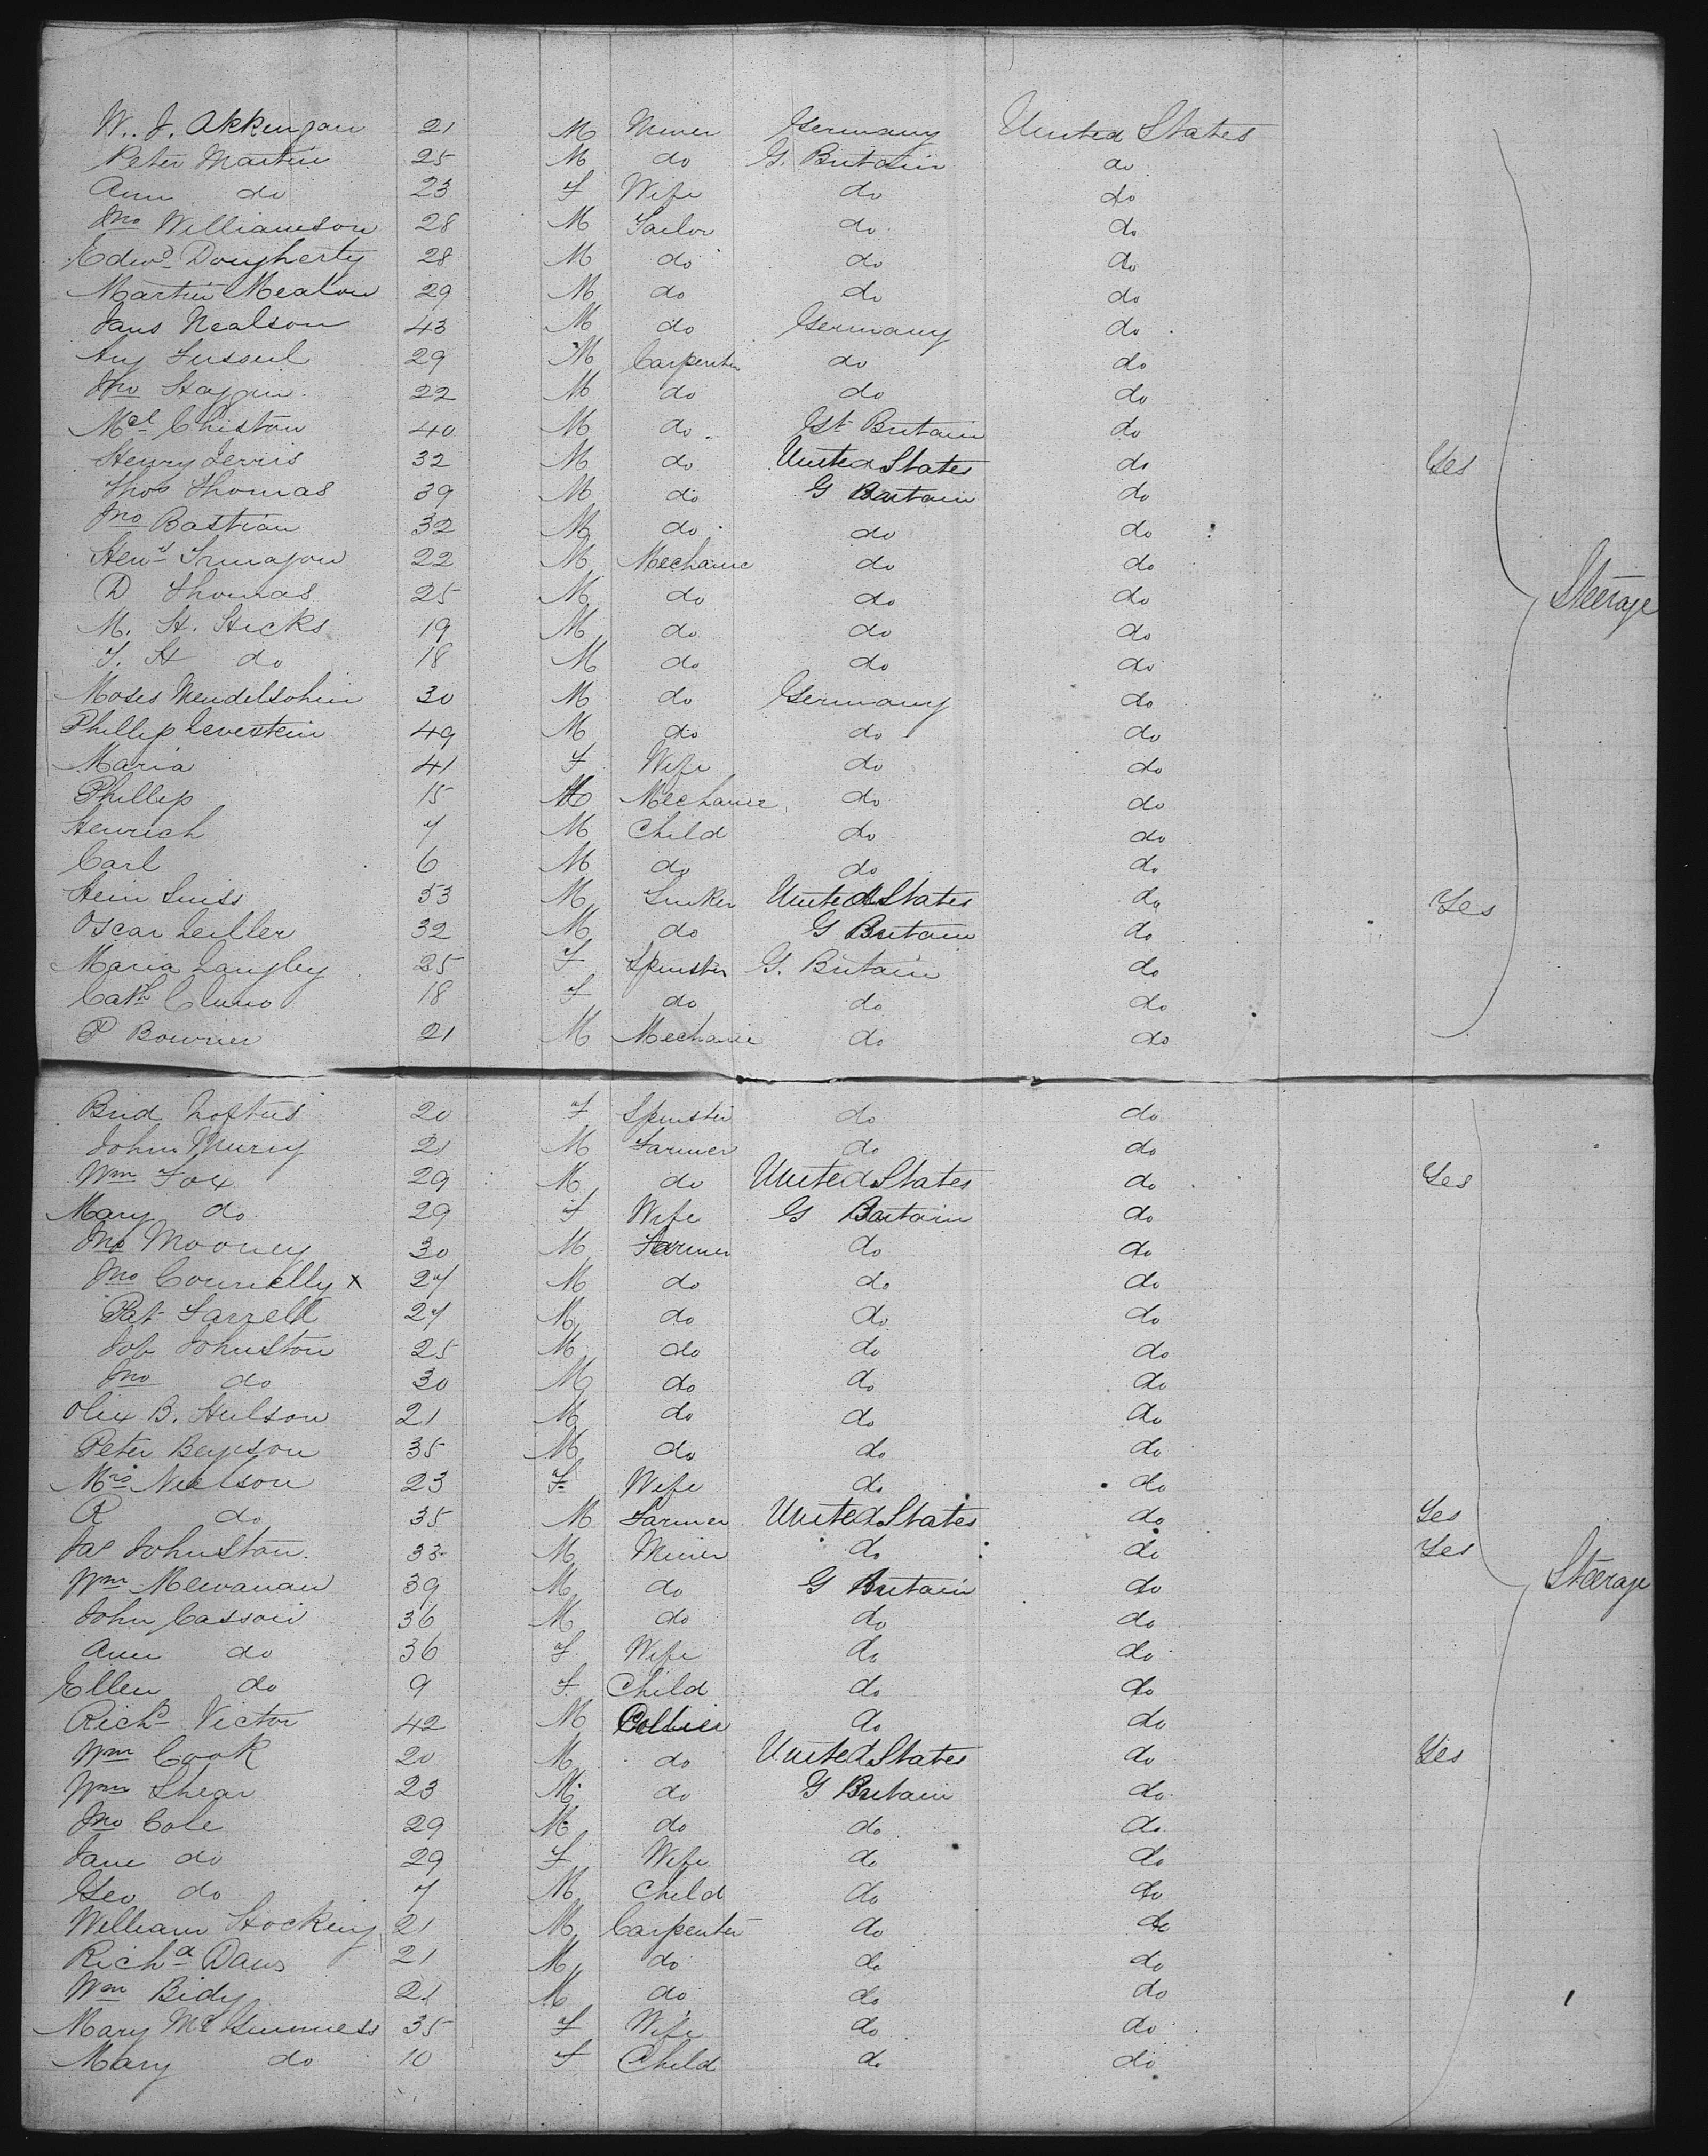 W. J. Akkenzau 21 M Miner Germany United States
Peter Martin 25 M do G. Britain do
Ann do 23 F Wife do do
Jno Williamson 28 M Tailor do do
Edwd Dougherty 28 M do do do
Martin Mealow 29 M do do do
Jans Nealson 43 M do Germany do
29 M Carpenter do do
Jno 22 M do do do
Mcl Chiston 40 M do Gt Britain do
Henry Jervis 32 M do United States do Yes
Thos Thomas 39 M do G Britain do
Jno Bastian 32 M do do do
Heny 22 M Mechanic do do
D Thomas 25 M do do do Steerage
M. H. Hicks 19 M do do do
T. H do 18 M do do do
Moses Mendelsohn 30 M do Germany do
Phillip Leverstein 49 M do do do
Maria 41 F Wife do do
Phillip 15 M Mechanic do do
Henrich 7 M Child do do
Carl 6 M do do do
Hein Suiss 53 M United States do Yes
Oscar Leiller 32 M do G Britain do
Maria Langley 25 F Spinster G. Britain do
Cath Cluno 18 F do do do
P Bowrier 21 M Mechanic do do
Brid Loftus 20 F Spinster do do
John Murry 21 M Farmer do do
Wm Fox 29 M do United States do Yes
Mary do 29 F Wife G Britain do
Jno Mooney 30 M Farmer do do
Jno Connelly x 27 M do do do
Pat Farrell 27 M do do do
Job Johnston 25 M do do do
Jno do 30 M do do do
Olix B. Hulson 21 M do do do
Peter Beyson 35 M do do do
Mrs Nielson 23 F Wife do do
R do 35 M Farmer United States do Yes
Jas Johnston 33 M Miner do do Yes
Wm Mewanan 39 M do G Britain do Steerage
John Casson 36 M do do do
Ann do 36 F Wife do do
Ellen do 9 F Child do do
Richd Victor 42 M Collier do do
Wm Cook 20 M do United States do Yes
Wm Shear 23 M do G Britain do
Jno Cole 29 M do do do
Jane do 29 F Wife do do
Geo do 7 M Child do do
William Hocking 21 M Carpenter do do
Richd Davis 21 M do do do
Wm Bidy 21 M do do do
Mary McGuinness 35 F Wife do do
Mary do 10 F Child do do